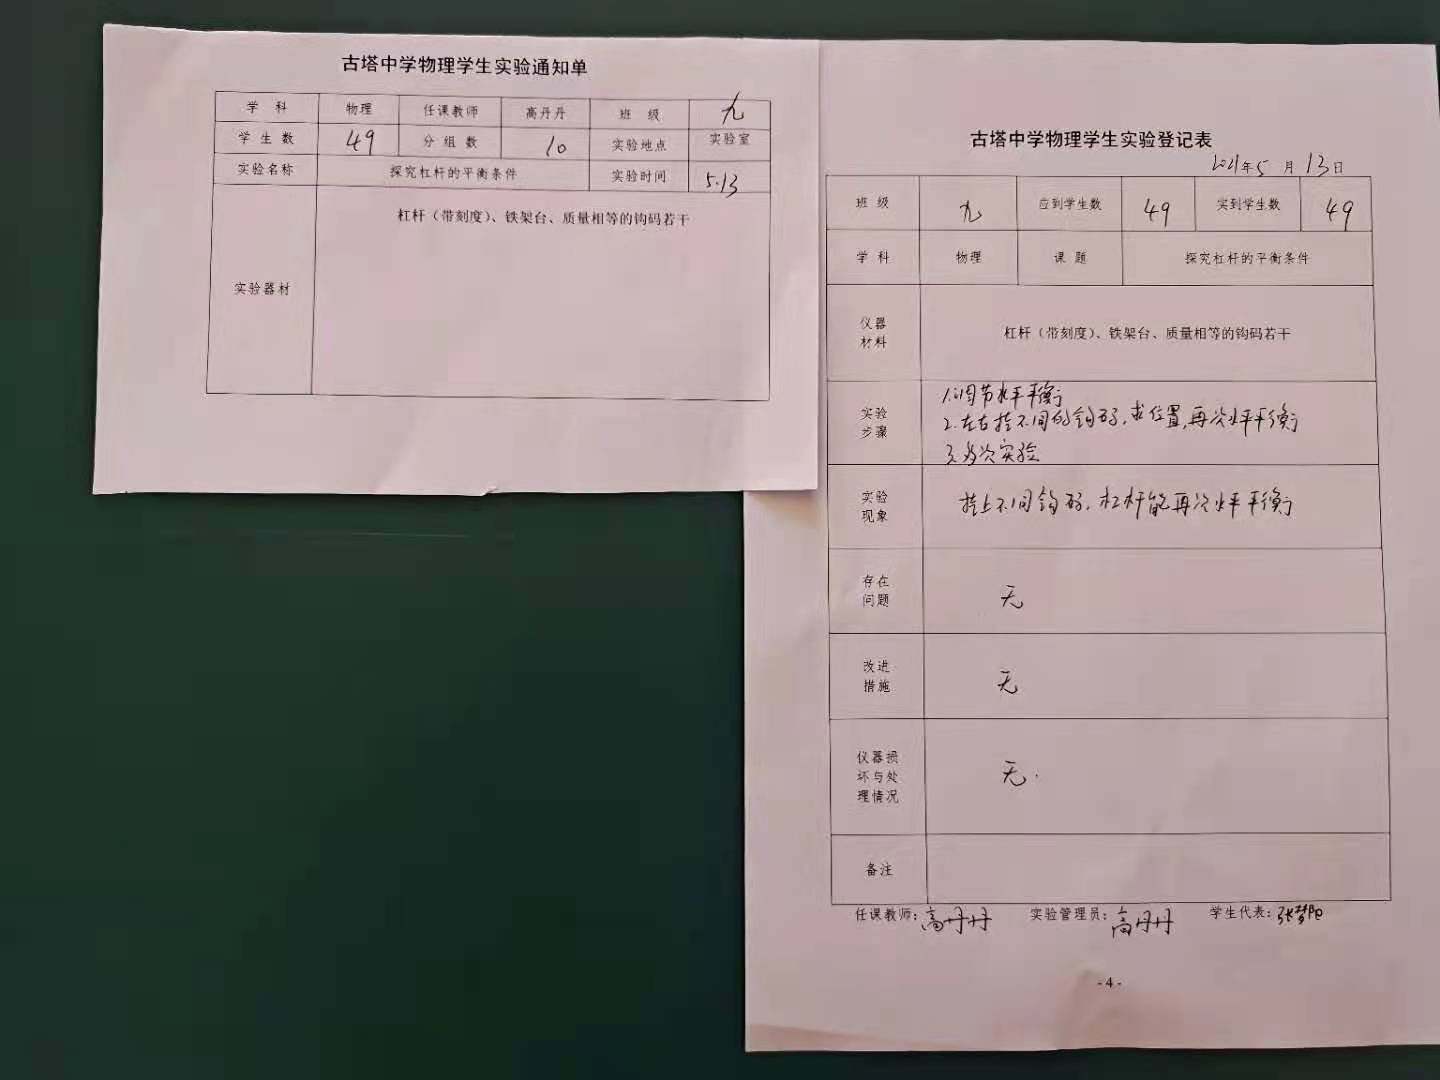 古塔中学物理学生实验通知单
学 科 物理 任课教师 高丹丹 班 级 九
学 生 数 49 分 组 数 10 实验地点 实验室
实验名称 探究杠杆的平衡条件 实验时间 5.13
实验器材 杠杆（带刻度）、铁架台、质量相等的钩码若干
古塔中学物理学生实验登记表
2021年5月13日
班 级 九 应到学生数 49 实到学生数 49
学 科 物理 课 题 探究杠杆的平衡条件
仪器
材料
杠杆（带刻度）、铁架台、质量相等的钩码若干
实验
步骤
1.调节水平平衡
2.左右挂不同的钩码，求位置，再次水平平衡
3.多次实验
实验
现象
挂上不同钩码，杠杆能再次水平平衡
存在
问题
无
改进
措施
无
仪器损
坏与处
理情况
无.
备注
任课教师：高丹丹 实验管理员：高丹丹 学生代表：张梦阳
- 4 -